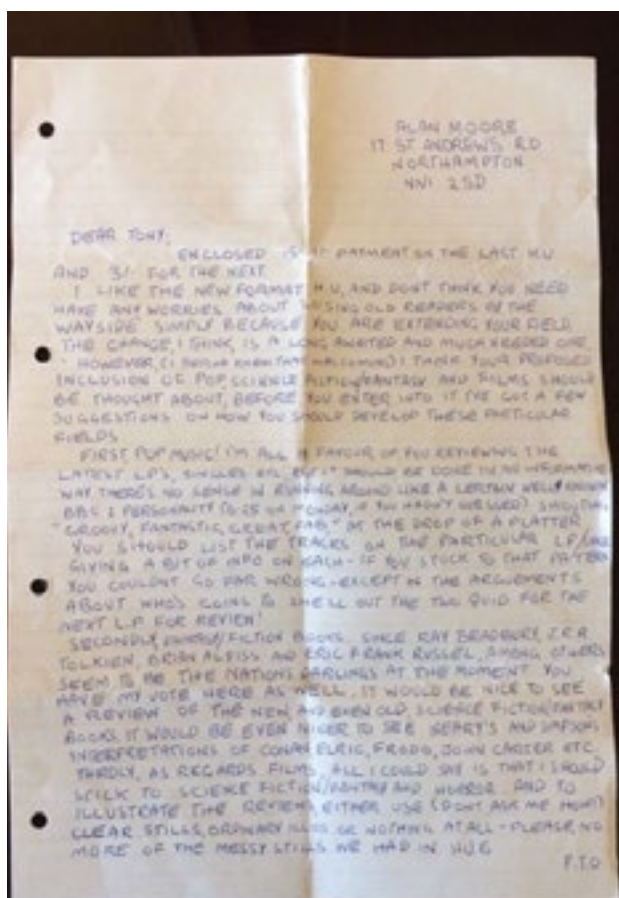 ALAN MOORE
17 ST ANDREWS RD
NORTHAMPTON
NN1 2SD
DEAR TONY,
ENCLOSED IS PAYMENT ON THE LAST H.U
AND 3/- FOR THE NEXT
I LIKE THE NEW FORMAT H.U, AND DONT THINK YOU NEED
HAVE ANY WORRIES ABOUT LOSING OLD READERS BY THE
WAYSIDE SIMPLY BECAUSE YOU ARE EXTENDING YOUR FIELD
THE CHANGE, I THINK, IS A LONG AWAITED AND MUCH NEEDED ONE
HOWEVER, (I KNEW THAT WAS COMING) I THINK YOUR PROPOSED
INCLUSION OF POP, SCIENCE FICTION/FANTASY AND FILMS SHOULD
BE THOUGHT ABOUT, BEFORE YOU ENTER INTO IT I'VE GOT A FEW
SUGGESTIONS ON HOW YOU SHOULD DEVELOP THESE PARTICULAR
FIELDS
FIRST, POP MUSIC! I'M ALL IN FAVOUR OF YOU REVIEWING THE
LATEST L.P'S, SINGLES ETC, BUT IT SHOULD BE DONE IN AN INFORMATIVE
WAY THERE'S NO SENSE IN RUNNING AROUND LIKE A CERTAIN WELL KNOWN
BBC 1 PERSONALITY (5.25 ON MONDAY, IF YOU HADN'T GUESSED) SHOUTING
"GROOVY, FANTASTIC, GREAT, FAB" AT THE DROP OF A PLATTER
YOU SHOULD LIST THE TRACKS ON THE PARTICULAR L.P
GIVING A BIT OF INFO ON EACH - IF YOU STUCK TO THAT PATTERN
YOU COULDN'T GO FAR WRONG - EXCEPT IN THE ARGUEMENTS
ABOUT WHO'S GOING TO SHELL OUT THE TWO QUID FOR THE
NEXT L.P FOR REVIEW!
SECONDLY, FANTASY/FICTION BOOKS. SINCE RAY BRADBURY, J.R.R
TOLKIEN, BRIAN ALDISS AND ERIC FRANK RUSSEL, AMONG OTHERS
SEEM TO BE THE NATIONS DARLINGS AT THE MOMENT YOU
HAVE MY VOTE HERE AS WELL. IT WOULD BE NICE TO SEE
A REVIEW OF THE NEW AND EVEN OLD, SCIENCE FICTION/FANTASY
BOOKS IT WOULD BE EVEN NICER TO SEE AND
INTERPRETATIONS OF CONAN ELRIC, FRODO, JOHN CARTER ETC
THIRDLY, AS REGARDS FILMS, ALL I COULD SAY IS THAT I SHOULD
STICK TO SCIENCE FICTION/FANTASY AND HORROR AND TO
ILLUSTRATE THE REVIEWS, EITHER USE (DONT ASK ME HOW!)
CLEAR STILLS, ORDINARY ILLOS OR NOTHING AT ALL - PLEASE, NO
MORE OF THE MESSY STILLS WE HAD IN
P.T.O